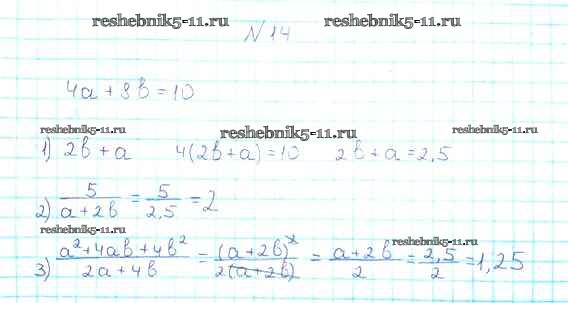 reshebnik5-11.ru reshebnik5-11.ru
N 14
4a + 8b = 10
reshebnik5-11.ru reshebnik5-11.ru reshebnik5-11.ru
1) 2b + a 4(2b + a) = 10 2b + a = 2,5
2) 5/(a + 2b) = 5/2,5 = 2
reshebnik5-11.ru reshebnik5-11.ru
3) (a² + 4ab + 4b²)/(2a + 4b) = (a + 2b)²/(2(a + 2b)) = (a + 2b)/2 = 2,5/2 = 1,25